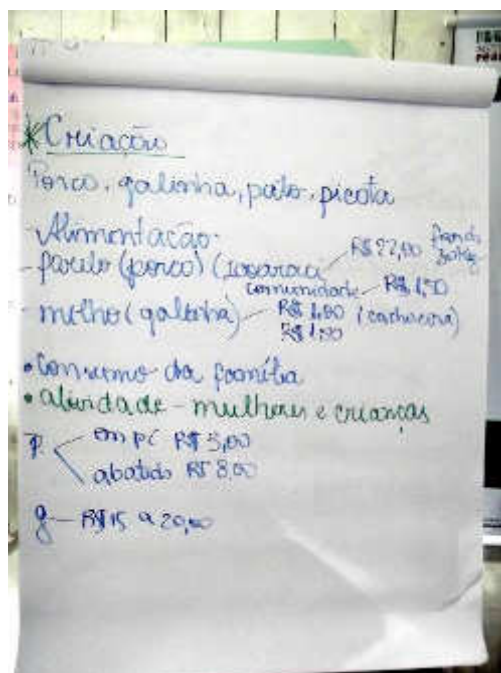 *Criação
Porco, galinha, pato, picota
- Alimentação
- farelo (porco) ( R$ 22,00
comunidade - R$ 1,50
- milho (galinha) - R$ 1,00 (cachoeira)
R$ 1,50
• Consumo da família
• atividade - mulheres e crianças
P. em pé R$ 5,00
abatido R$ 8,00
g - R$ 15 a 20,00